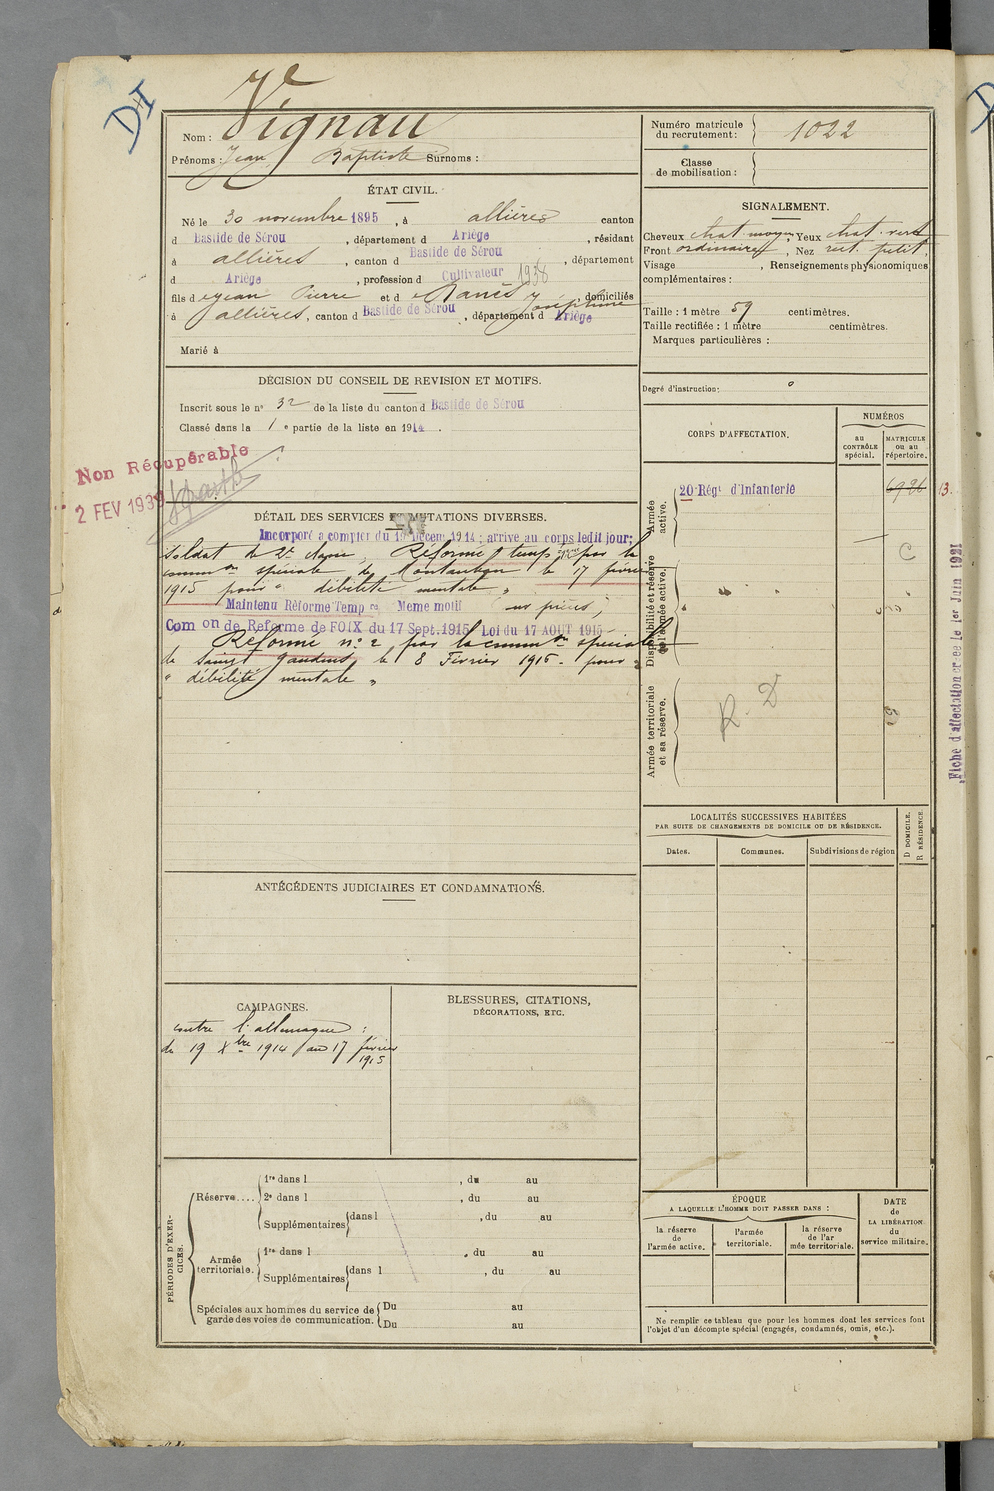 D I
Nom : Vignau
Prénoms : Jean Baptiste Surnoms :
Numéro matricule du recrutement : 1022
Classe de mobilisation :
ÉTAT CIVIL.
Né le 30 novembre 1895, à allières canton
d Bastide de Sérou, département d Ariège, résidant
à allières, canton d Bastide de Sérou, département
d Ariège, profession d Cultivateur 1938
fils de Jean Pierre et d Joséphine, domiciliés
à allières, canton d Bastide de Sérou, département d Ariège
Marié à
SIGNALEMENT.
Cheveux chat. moyen, Yeux chat. verd
Front ordinaire, Nez rect. petit.
Visage , Renseignements physionomiques
complémentaires :
Taille : 1 mètre 59 centimètres.
Taille rectifiée : 1 mètre centimètres.
Marques particulières :
Degré d'instruction: 0
DÉCISION DU CONSEIL DE REVISION ET MOTIFS.
Inscrit sous le n° 32 de la liste du canton d Bastide de Sérou
Classé dans la 1 e partie de la liste en 1914.
Non Récupérable
2 FEV 1939
DÉTAIL DES SERVICES ET MUTATIONS DIVERSES.
Incorporé a compter du 19 Décem. 1914; arrivé au corps ledit jour;
soldat de 2e classe, Réformé temp re par la
comm on spéciale de Montauban le 17 février
1915 pour " débilité mentale "
Maintenu Réformé Temp re Meme motif sur pièces,
Com on de Reforme de FOIX du 17 Sept. 1915 Loi du 17 AOUT 1915
Réformé n° 2 par la comm on spéciale
de Saint Gaudens le 8 Février 1916. pour
" débilité mentale "
CORPS D'AFFECTATION.
NUMÉROS
au CONTRÔLE spécial.
MATRICULE ou au répertoire.
Armée active.
20 Régt d'Infanterie
6986
13.
Disponibilité et réserve de l'armée active.
"
"
C
Armée territoriale et sa réserve.
R. D
Fiche d'affectation créée le 1er Juin 1921
LOCALITÉS SUCCESSIVES HABITÉES
PAR SUITE DE CHANGEMENTS DE DOMICILE OU DE RÉSIDENCE.
Dates.
Communes.
Subdivisions de région
D DOMICILE.
R RÉSIDENCE.
ANTÉCÉDENTS JUDICIAIRES ET CONDAMNATIONS.
CAMPAGNES.
contre l'allemagne :
du 19 Xbre 1914 au 17 février
1915
BLESSURES, CITATIONS,
DÉCORATIONS, ETC.
PÉRIODES D'EXERCICES.
Réserve....
1re dans l , du au
2e dans l , du au
Supplémentaires dans l , du au
Armée territoriale.
1re dans l , du au
Supplémentaires dans l , du au
Spéciales aux hommes du service de garde des voies de communication.
Du au
Du au
ÉPOQUE
A LAQUELLE L'HOMME DOIT PASSER DANS :
la réserve de l'armée active.
l'armée territoriale.
la réserve de l'armée territoriale.
DATE de LA LIBÉRATION du service militaire.
Ne remplir ce tableau que pour les hommes dont les services font
l'objet d'un décompte spécial (engagés, condamnés, omis, etc.).